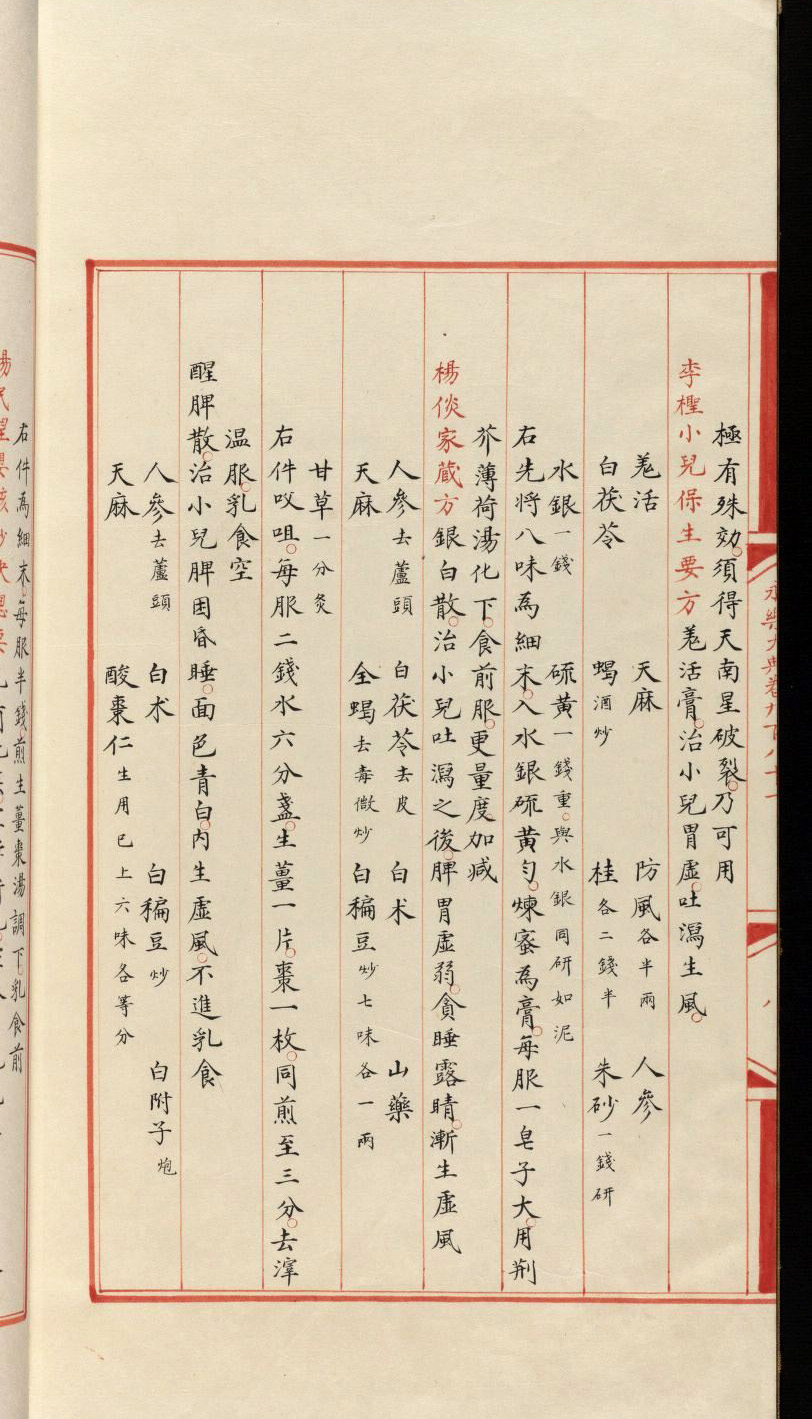 極有殊効。須得天南星破裂。乃可用
李檉小兒保生要方羗活膏。治小兒胃虛。吐瀉生風。
羗活 天麻 防風各半兩 人參
白茯苓 蝎酒炒 桂各二錢半 朱砂一錢研
水銀一錢 硫黄一錢重。與水銀同研如泥
右先将八味為細末。入水銀硫黄匀。煉蜜為膏。每服一皂子大。用荆
芥薄荷湯化下。食前服。更量度加减
楊倓家蔵方銀白散。治小兒吐瀉之後。脾胃虛弱。貪睡露睛。漸生虛風
人參去蘆頭 白茯苓去皮 白术 山藥
天麻 全蝎去毒微炒 白稨豆炒七味各一兩
甘草一分炙
右件㕮咀。每服二錢水六分盞。生薑一片。棗一枚。同煎至三分。去滓
温服。乳食空
醒脾散。治小兒脾困昏睡。面色青白。内生虛風。不進乳食
人參去蘆頭 白术 白稨豆炒 白附子炮
天麻 酸棗仁生用已上六味各等分
右件為細末。每服半錢煎生薑棗湯調下。乳食前